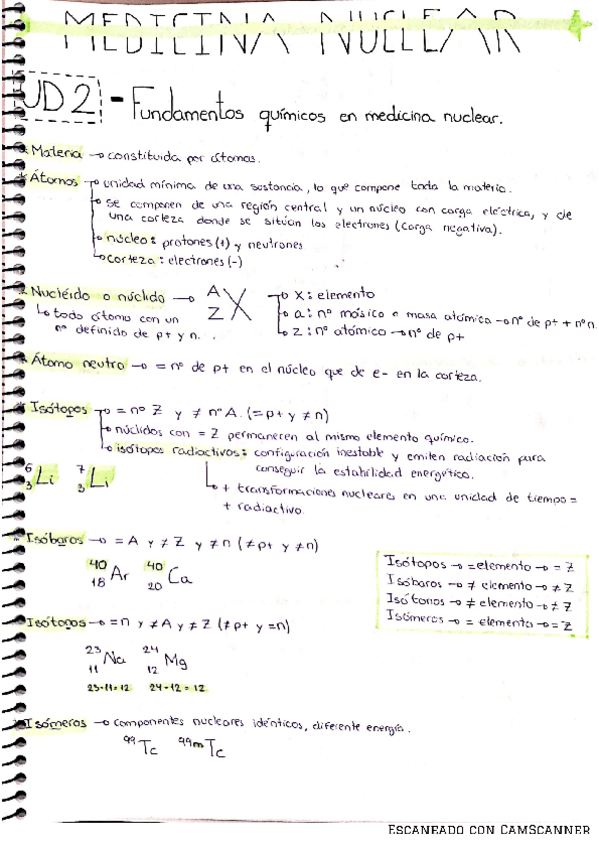 MEDICINA NUCLEAR
UD2 - Fundamentos químicos en medicina nuclear.
Materia → constituida por átomos.
Átomos → unidad mínima de una sustancia, lo que compone toda la materia.
→ se componen de una región central y un núcleo con carga eléctrica, y de
una corteza donde se sitúan los electrones (carga negativa).
→ núcleo: protones (+) y neutrones
→ corteza: electrones (-)
Nucléido o núclido → A Z X → X: elemento
→ todo átomo con un nº definido de p+ y n.
→ a: nº másico o masa atómica → nº de p+ + nº n.
→ z: nº atómico → nº de p+
Átomo neutro → = nº de p+ en el núcleo que de e- en la corteza.
Isótopos → = nº Z y ≠ nº A. (= p+ y ≠ n)
→ núclidos con = Z permanecen al mismo elemento químico.
→ isótopos radiactivos: configuración inestable y emiten radiación para
conseguir la estabilidad energética.
6 3 Li 7 3 Li
→ + transformaciones nucleares en una unidad de tiempo =
+ radiactivo.
Isóbaros → = A y ≠ Z y ≠ n (≠ p+ y ≠ n)
40 18 Ar 40 20 Ca
Isótopos → = elemento → = Z
Isóbaros → ≠ elemento → ≠ Z
Isótonos → ≠ elemento → ≠ Z
Isómeros → = elemento → = Z
Isótonos → = n y ≠ A y ≠ Z (≠ p+ y = n)
23 11 Na 24 12 Mg
23-11=12 24-12=12
Isómeros → componentes nucleares idénticos, diferente energía.
99 Tc 99m Tc
ESCANEADO CON CAMSCANNER